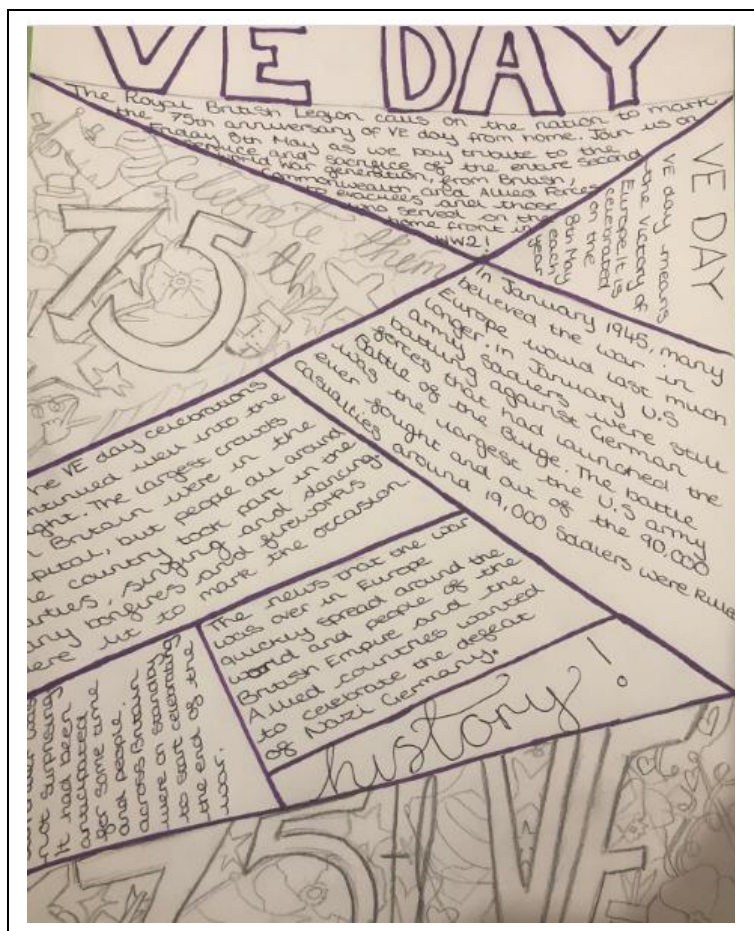 VE DAY
The Royal British Legion calls on the nation to mark
the 75th anniversary of VE day from home. Join us on
Friday 8th May as we pay tribute to the
service and sacrifice of the entire Second
World War generation, from British,
Commonwealth and Allied Forces
to evacuees and those
who served on the
home front in
WW2!
VE DAY
VE day means
the victory of
Europe. it is
celebrated
on the
8th May
each
year
Celebrate them
the
75
In January 1945, many
believed the war in
Europe would last much
longer. in January U.S
army Soldiers were still
battling against German
forces that had launched the
Battle of the Bulge. The battle
was the largest the U.S army
ever fought and out of the 90,000
Casualties around 19,000 Soldiers were
he VE day celebrations
ntinued well into the
ght. The largest crowds
n Britain were in the
pital, but people all around
e country took part in the
arties, singing and dancing.
any bonfires and fireworks
ere lit to mark the occasion.
The news that the war
was over in Europe
quickly spread around the
world and people of the
British Empire and the
Allied countries wanted
to celebrate the defeat
of Nazi Germany.
was
not surprising
It had been
anticipated
for some time
and people.
across Britain
were on standby
to start celebrating
the end of the
war.
history!
75 VE